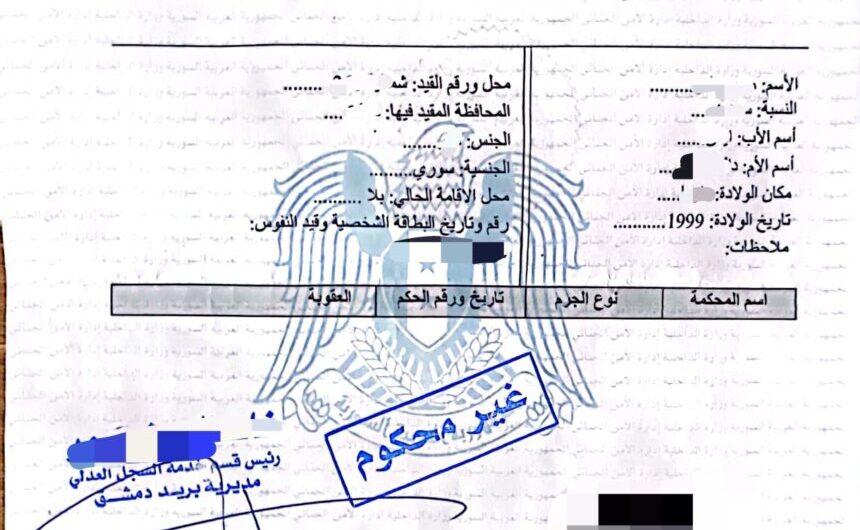 الأسم: ..........
النسبة: ....
أسم الأب: .....
أسم الأم: ....
مكان الولادة: .....
تاريخ الولادة: 1999...........
ملاحظات:
محل ورقم القيد: ........
المحافظة المقيد فيها: ....
الجنس: ........
الجنسية: سوري........
محل الأقامة الحالي: بلا .........
رقم وتاريخ البطاقة الشخصية وقيد النفوس:
اسم المحكمة نوع الجرم تاريخ ورقم الحكم العقوبة
غير محكوم
رئيس قسم خدمة السجل العدلي
مديرية بريد دمشق